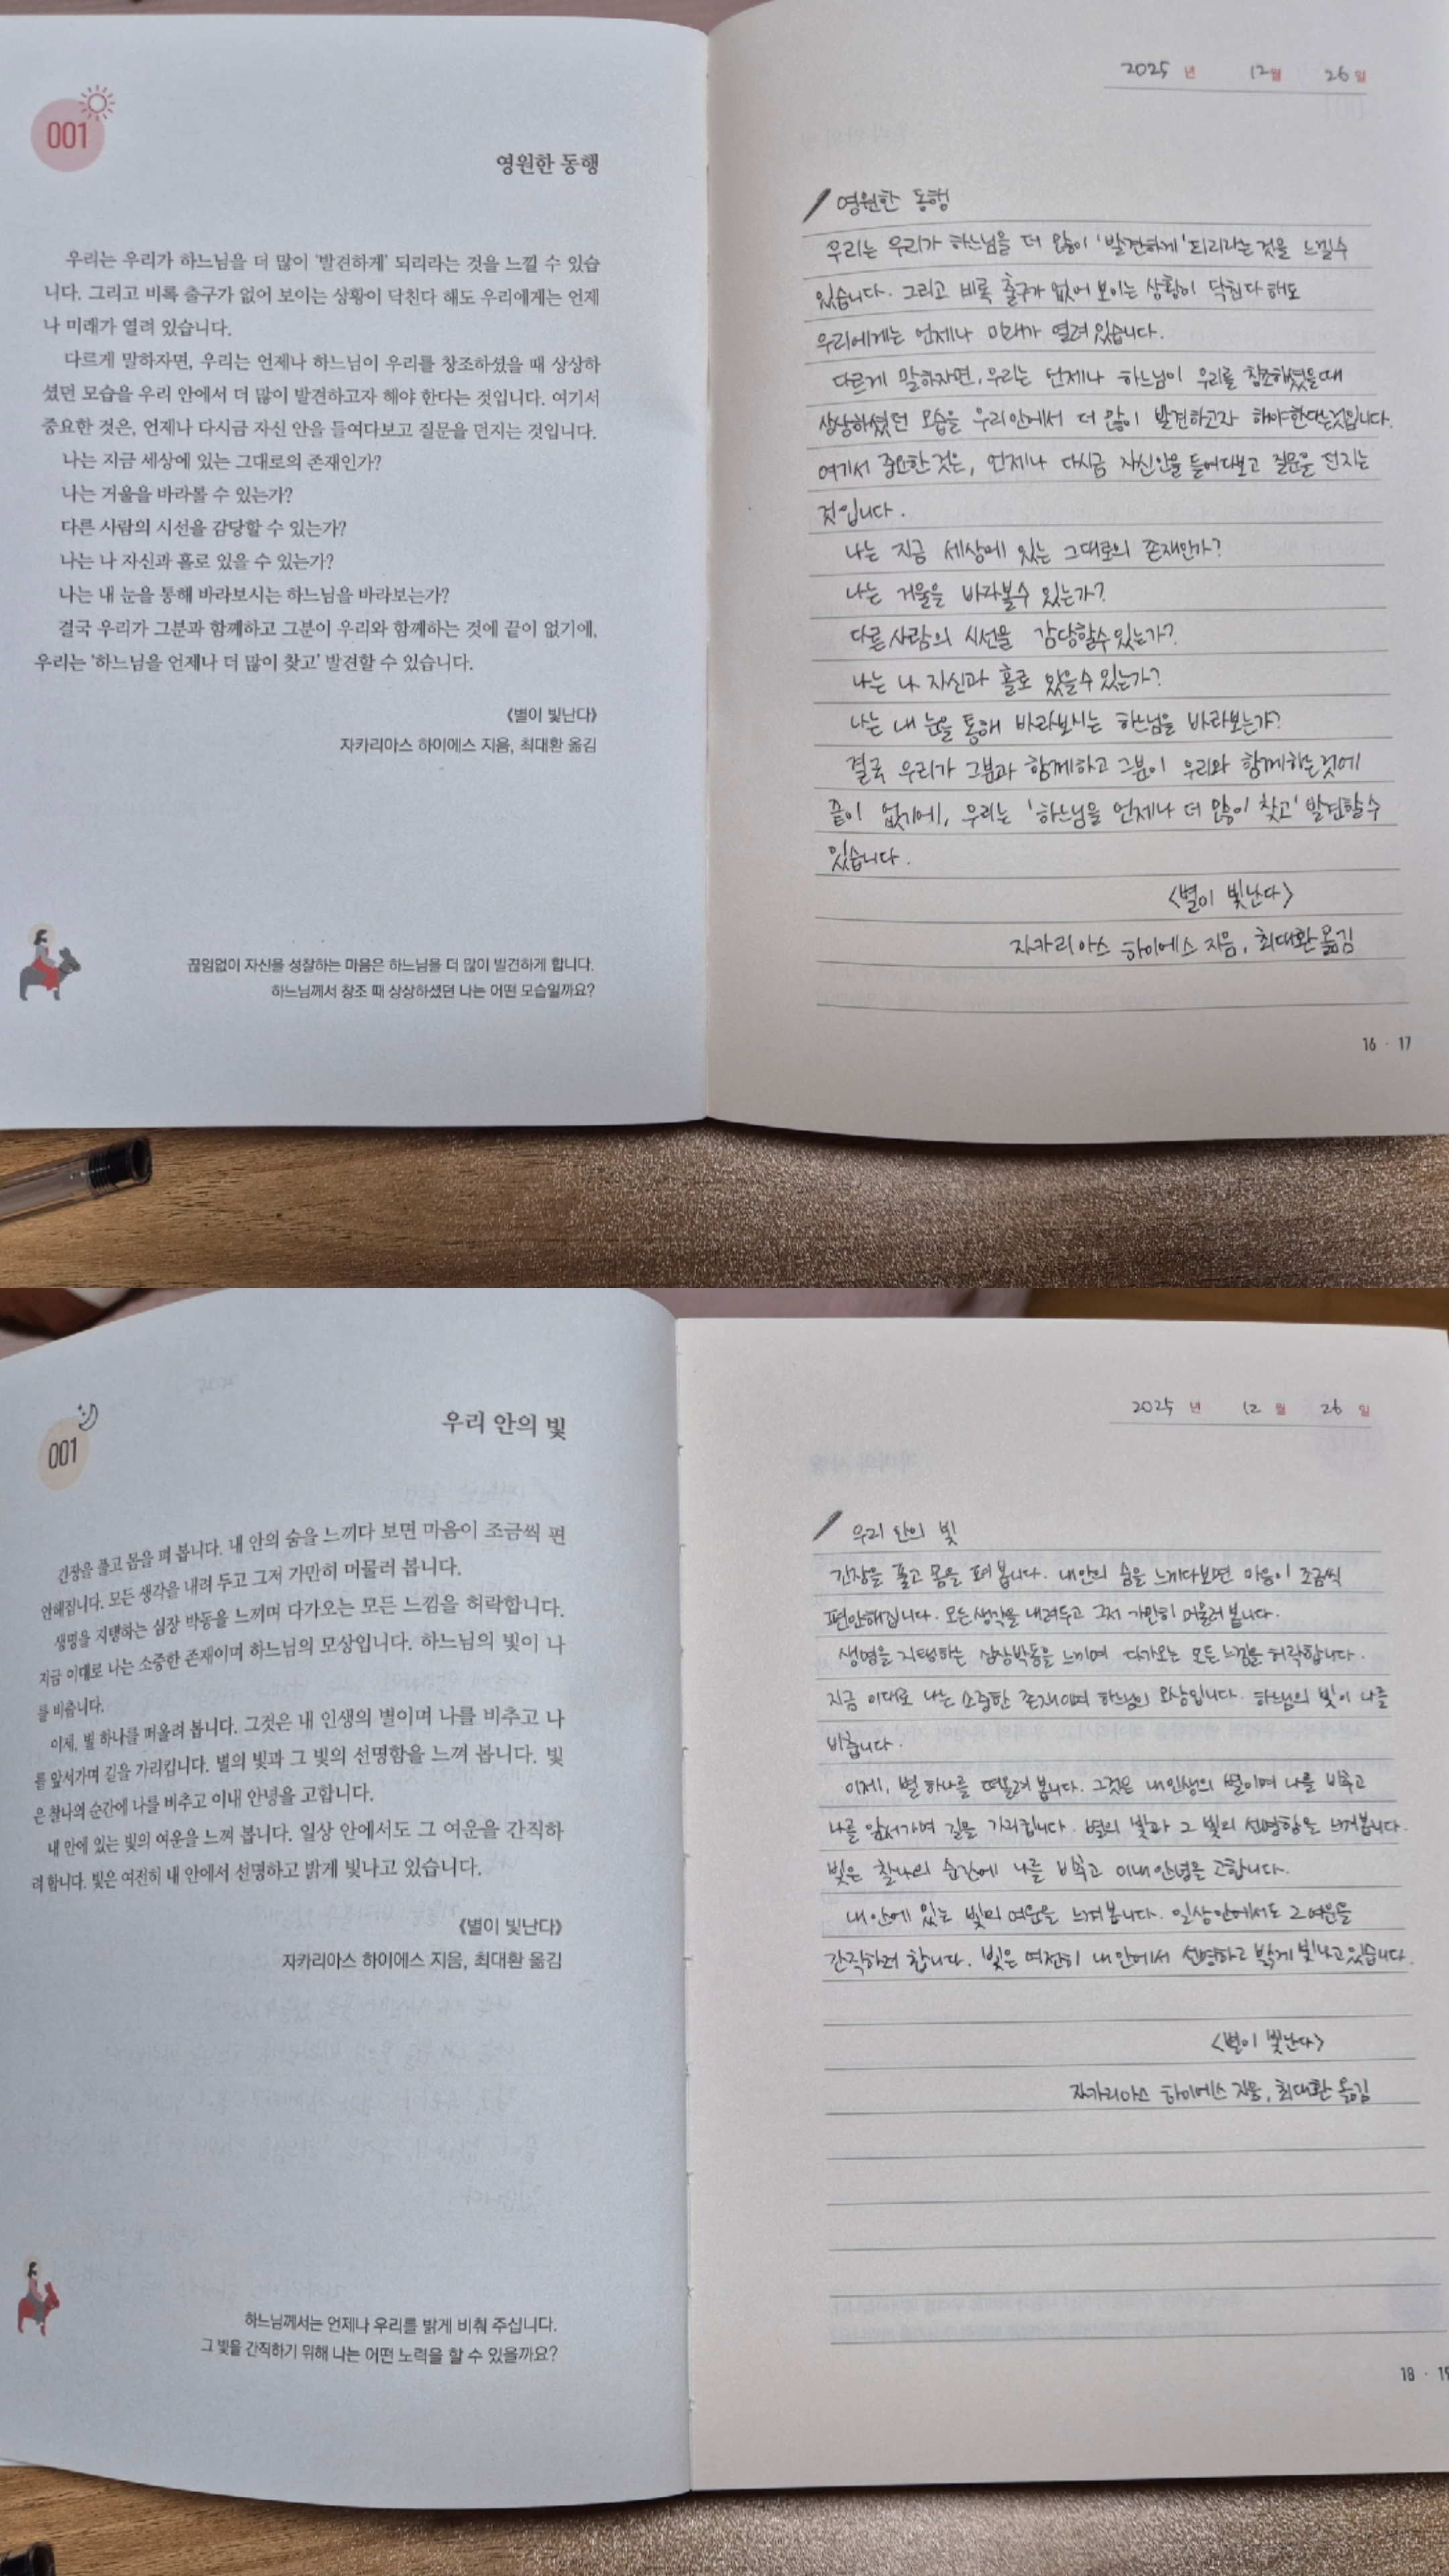 001
영원한 동행
우리는 우리가 하느님을 더 많이 '발견하게' 되리라는 것을 느낄 수 있습
니다. 그리고 비록 출구가 없어 보이는 상황이 닥친다 해도 우리에게는 언제
나 미래가 열려 있습니다.
다르게 말하자면, 우리는 언제나 하느님이 우리를 창조하셨을 때 상상하
셨던 모습을 우리 안에서 더 많이 발견하고자 해야 한다는 것입니다. 여기서
중요한 것은, 언제나 다시금 자신 안을 들여다보고 질문을 던지는 것입니다.
나는 지금 세상에 있는 그대로의 존재인가?
나는 거울을 바라볼 수 있는가?
다른 사람의 시선을 감당할 수 있는가?
나는 나 자신과 홀로 있을 수 있는가?
나는 내 눈을 통해 바라보시는 하느님을 바라보는가?
결국 우리가 그분과 함께하고 그분이 우리와 함께하는 것에 끝이 없기에,
우리는 '하느님을 언제나 더 많이 찾고' 발견할 수 있습니다.
《별이 빛난다》
자카리아스 하이에스 지음, 최대환 옮김
끊임없이 자신을 성찰하는 마음은 하느님을 더 많이 발견하게 합니다.
하느님께서 창조 때 상상하셨던 나는 어떤 모습일까요?
2025 년 12월 26일
영원한 동행
우리는 우리가 하느님을 더 많이 '발견하게' 되리라는 것을 느낄수
있습니다. 그리고 비록 출구가 없어 보이는 상황이 닥친다 해도
우리에게는 언제나 미래가 열려 있습니다.
다르게 말하자면, 우리는 언제나 하느님이 우리를 창조하셨을때
상상하셨던 모습을 우리안에서 더 많이 발견하고자 해야한다는것입니다.
여기서 중요한 것은, 언제나 다시금 자신안을 들여다보고 질문을 던지는
것입니다.
나는 지금 세상에 있는 그대로의 존재인가?
나는 거울을 바라볼수 있는가?
다른 사람의 시선을 감당할수있는가?
나는 나 자신과 홀로 있을수 있는가?
나는 내 눈을 통해 바라보시는 하느님을 바라보는가?
결국 우리가 그분과 함께하고 그분이 우리와 함께하는것에
끝이 없기에, 우리는 '하느님을 언제나 더 많이 찾고' 발견할수
있습니다.
<별이 빛난다>
자카리아스 하이에스 지음, 최대환 옮김
16 · 17
001
우리 안의 빛
긴장을 풀고 몸을 펴 봅니다. 내 안의 숨을 느끼다 보면 마음이 조금씩 편
안해집니다. 모든 생각을 내려 두고 그저 가만히 머물러 봅니다.
생명을 지탱하는 심장 박동을 느끼며 다가오는 모든 느낌을 허락합니다.
지금 이대로 나는 소중한 존재이며 하느님의 모상입니다. 하느님의 빛이 나
를 비춥니다.
이제, 별 하나를 떠올려 봅니다. 그것은 내 인생의 별이며 나를 비추고 나
를 앞서가며 길을 가리킵니다. 별의 빛과 그 빛의 선명함을 느껴 봅니다. 빛
은 찰나의 순간에 나를 비추고 이내 안녕을 고합니다.
내 안에 있는 빛의 여운을 느껴 봅니다. 일상 안에서도 그 여운을 간직하
려 합니다. 빛은 여전히 내 안에서 선명하고 밝게 빛나고 있습니다.
《별이 빛난다》
자카리아스 하이에스 지음, 최대환 옮김
하느님께서는 언제나 우리를 밝게 비춰 주십니다.
그 빛을 간직하기 위해 나는 어떤 노력을 할 수 있을까요?
2025 년 12 월 26 일
우리 안의 빛
긴장을 풀고 몸을 펴 봅니다. 내안의 숨을 느끼다보면 마음이 조금씩
편안해집니다. 모든생각을 내려두고 그저 가만히 머물러 봅니다.
생명을 지탱하는 심장박동을 느끼며 다가오는 모든 느낌을 허락합니다.
지금 이대로 나는 소중한 존재이며 하느님의 모상입니다. 하느님의 빛이 나를
비춥니다.
이제, 별 하나를 떠올려 봅니다. 그것은 내인생의 별이며 나를 비추고
나를 앞서가며 길을 가리킵니다. 별의 빛과 그 빛의 선명함을 느껴봅니다.
빛은 찰나의 순간에 나를 비추고 이내안녕을 고합니다.
내 안에 있는 빛의 여운을 느껴봅니다. 일상안에서도 그여운을
간직하려 합니다. 빛은 여전히 내안에서 선명하고 밝게 빛나고있습니다.
<별이 빛난다>
자카리아스 하이에스 지음, 최대환 옮김
18 · 19